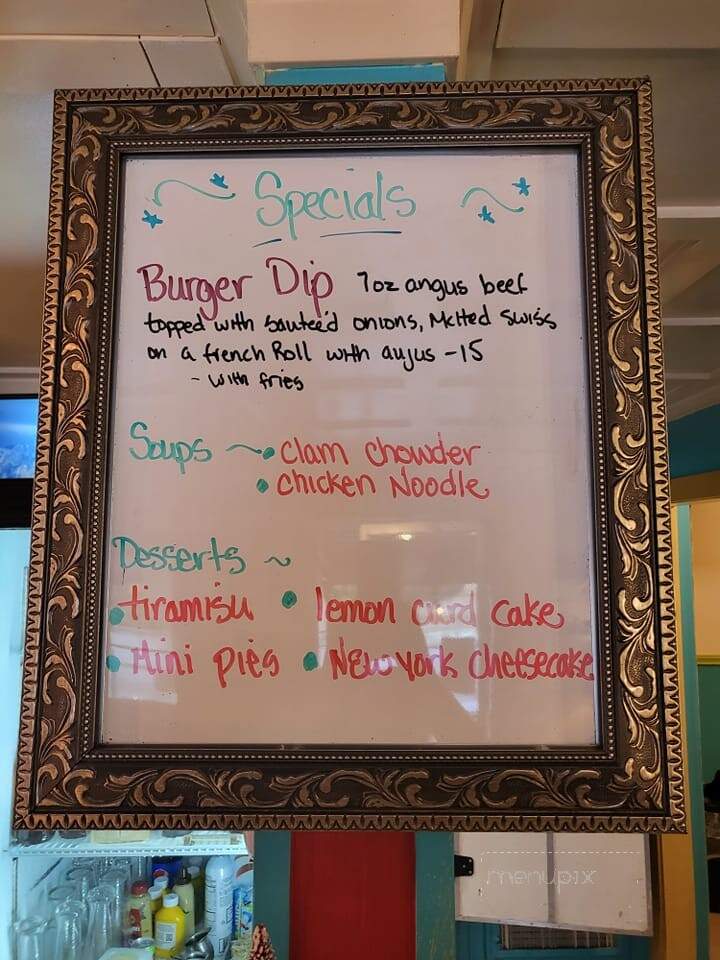 Specials
Burger Dip 7oz angus beef
topped with sauteéd onions, Melted Swiss
on a french Roll with aujus -15
- with fries
Soups ~ • clam chowder
• chicken Noodle
Desserts ~
• tiramisu • lemon curd cake
• Mini pies • New York cheesecake
menupix